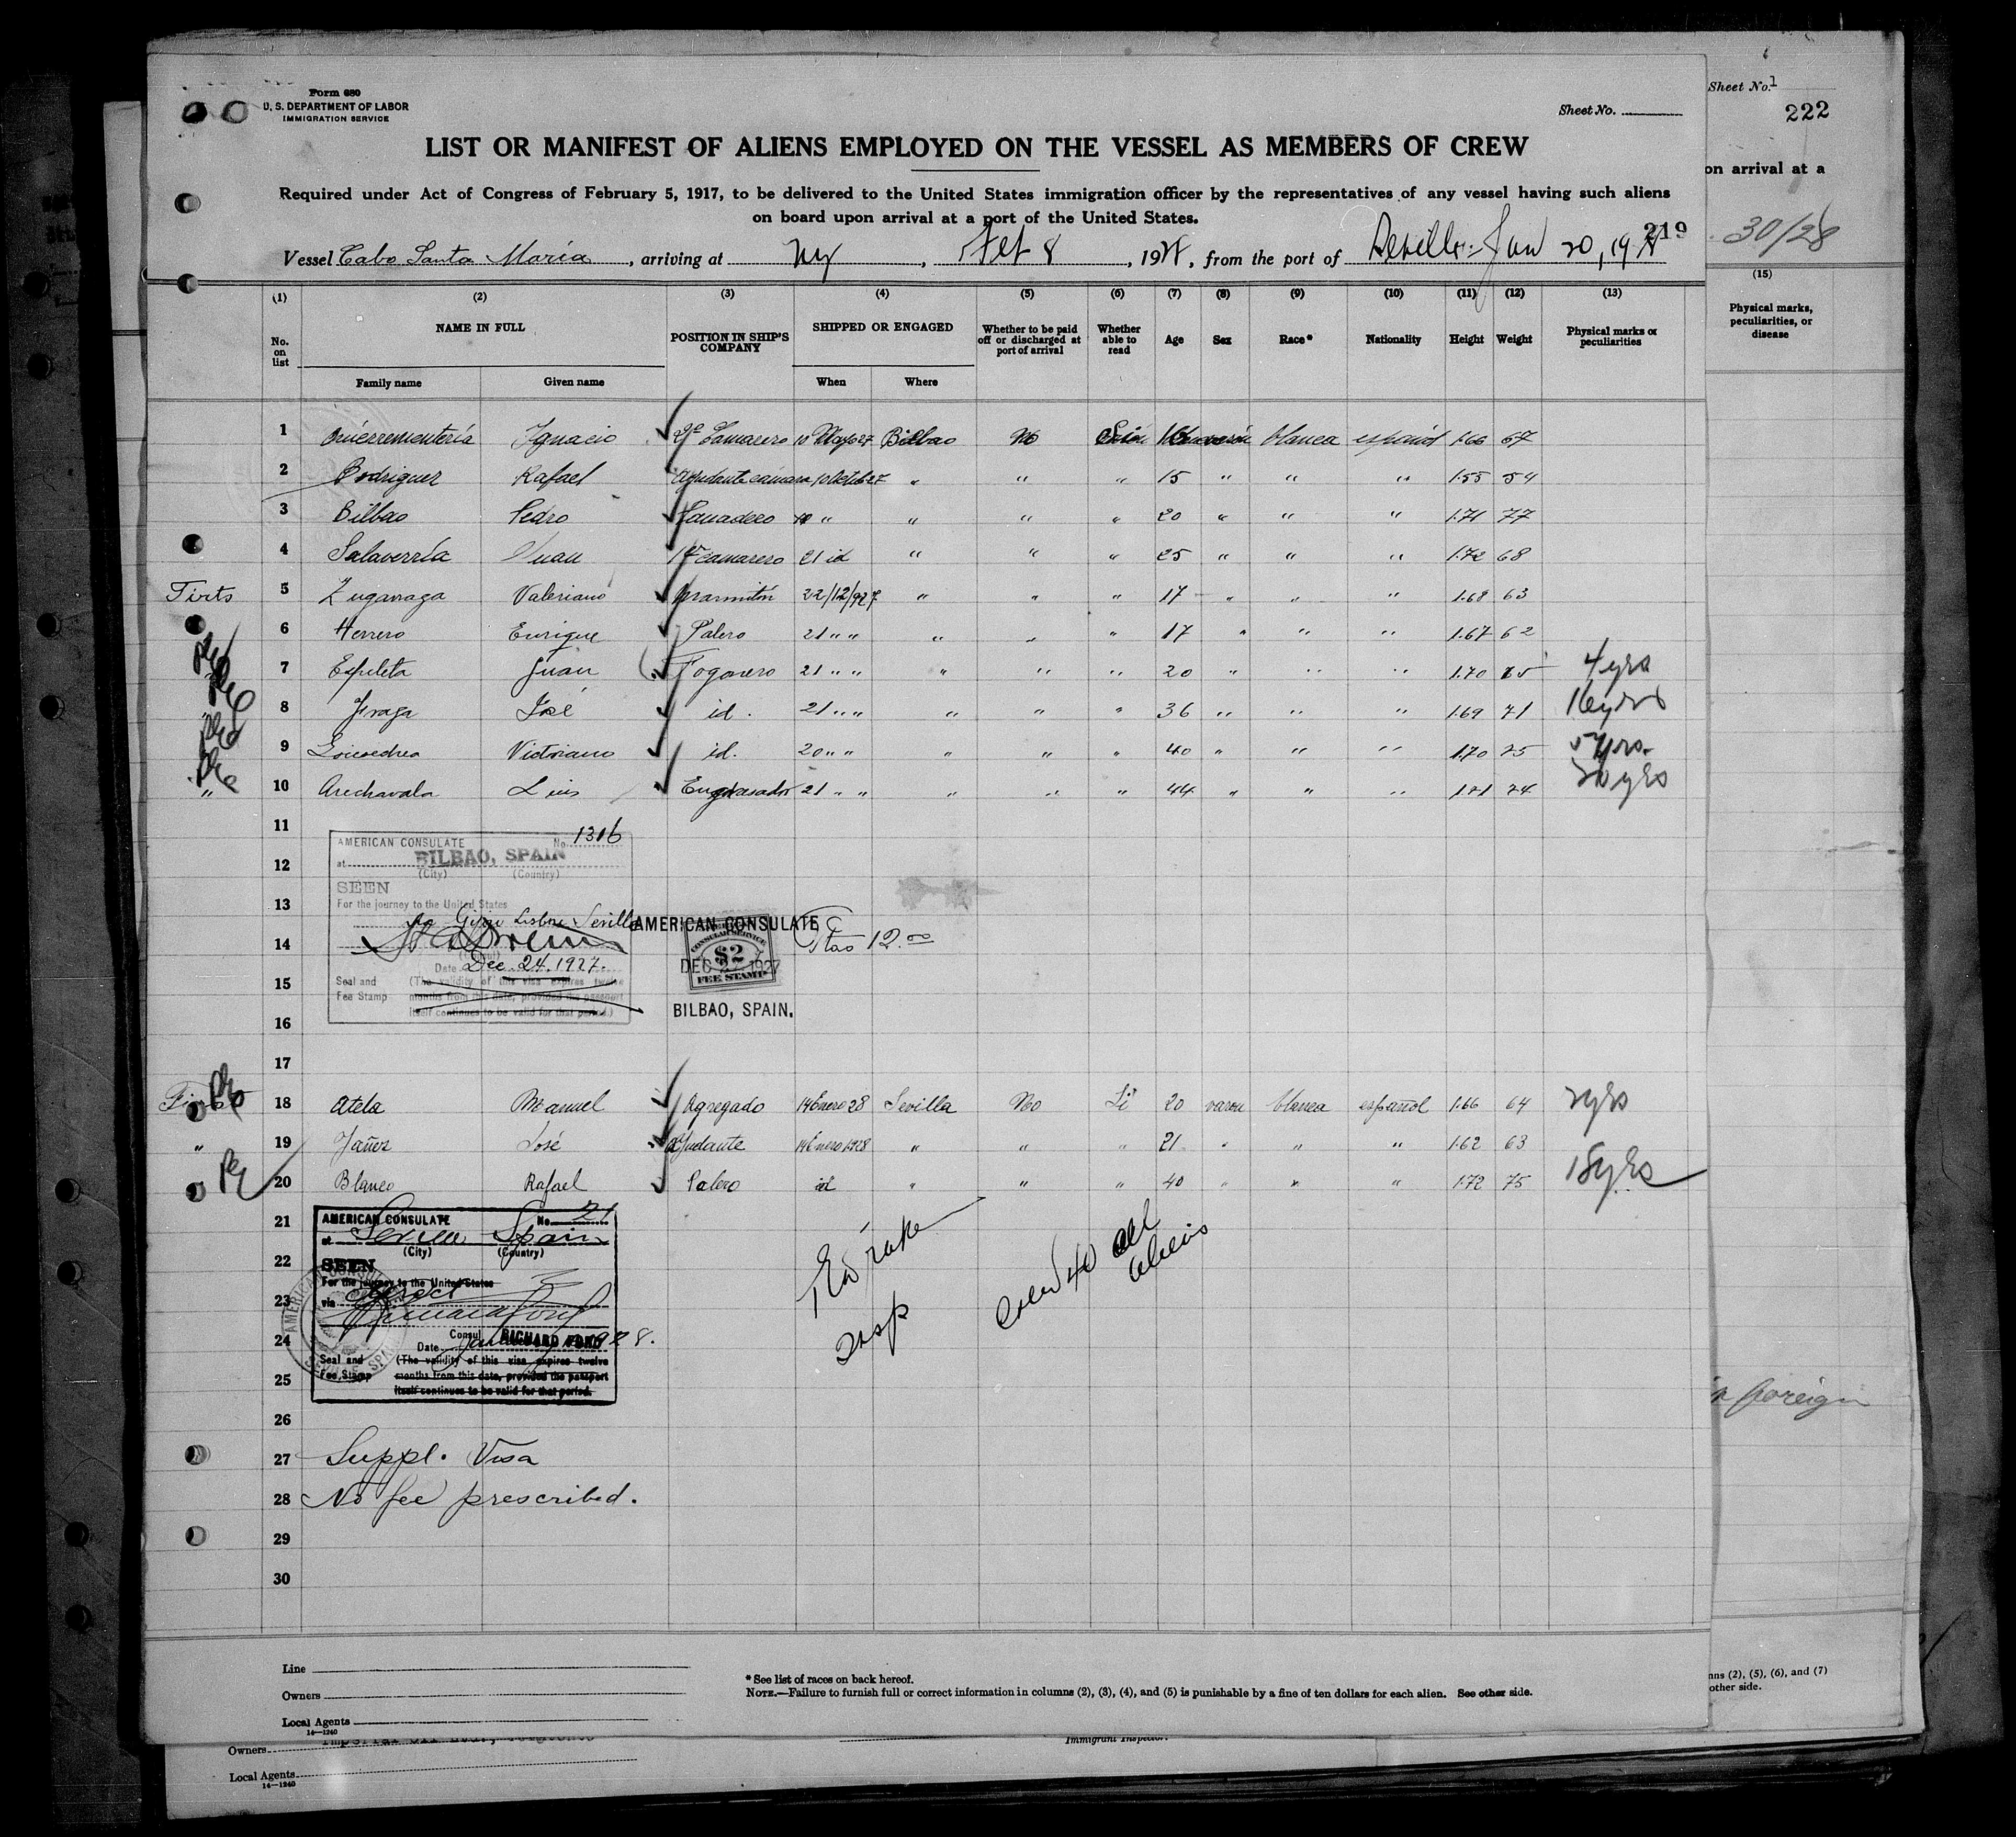 Form 680
U. S. DEPARTMENT OF LABOR
IMMIGRATION SERVICE
Sheet No.
Sheet No. 1
222
LIST OR MANIFEST OF ALIENS EMPLOYED ON THE VESSEL AS MEMBERS OF CREW
Required under Act of Congress of February 5, 1917, to be delivered to the United States immigration officer by the representatives of any vessel having such aliens
on board upon arrival at a port of the United States.
on arrival at a
219
30/28
Vessel Cabo Santa María, arriving at NY, Feb 8, 1928, from the port of Sevilla Jan 20, 1928
(1) (2) (3) (4) (5) (6) (7) (8) (9) (10) (11) (12) (13) (15)
No. on list NAME IN FULL POSITION IN SHIP'S COMPANY SHIPPED OR ENGAGED Whether to be paid off or discharged at port of arrival Whether able to read Age Sex Race* Nationality Height Weight Physical marks or peculiarities
Physical marks, peculiarities, or disease
Family name Given name When Where
1 Ignacio 2º Camarero 10 Mayo 27 Bilbao No varón blanca español 1.66 67
2 Rodriguez Rafael Ayudante camara 10 27 " " " 15 " " " 1.55 54
3 Bilbao Pedro Panadero " " " " 20 " " " 1.71 77
4 Salaverría Juan 1º camarero 21 id " " " 25 " " " 1.72 68
Firts 5 Zugarraga Valeriano Marmitón 22/12/927 " " " 17 " " " 1.68 63
6 Herrero Enrique Palero 21 " " " " " 17 " " " 1.67 62
7 Espeleta Juan Fogonero 21 " " " " " 20 " " " 1.70 4 yrs
8 Fraga José id. 21 " " " " " 36 " " " 1.69 71 16 yrs
9 Victoriano id. 20 " " " " " 40 " " " 1.70 75 5 yrs.
" 10 Arechavala Luis Engrasador 21 " " " " " 44 " " " 1.71 74 20 yrs
11
12
13
14
15
16
17
AMERICAN CONSULATE No. 1316
at BILBAO, SPAIN
(City) (Country)
SEEN
For the journey to the United States
Gijon Lisbon Sevilla
Date Dec. 24. 1927.
Seal and Fee Stamp (The validity of this visa expires twelve
months from this date, provided the passport
itself continues to be valid for that period.)
AMERICAN CONSULATE
CONSULAR SERVICE
$2
FEE STAMP
DEC 1927
BILBAO, SPAIN.
Ptas 12.00
18 Atela Manuel Agregado 14 Enero 28 Sevilla No Si 20 varon blanca español 1.66 64 2 yrs
" 19 Yañez José Ayudante 14 Enero 1928 " " " 21 " " " 1.62 63
20 Blanco Rafael Palero id " " " 40 " " " 1.72 75 18 yrs
21
22
23
24
25
26
AMERICAN CONSULATE No. 21
at Seville Spain
(City) (Country)
SEEN
For the journey to the United States
via direct
Consul RICHARD FORD
Date January 1928.
Seal and Fee Stamp (The validity of this visa expires twelve
months from this date, provided the passport
itself continues to be valid for that period.
AMERICAN CONSULATE SEVILLE, SPAIN
Insp
Crew 40 all aliens
in foreign
27 Suppl. Visa
28 No fee prescribed.
29
30
Line
Owners
Local Agents
14—1240
* See list of races on back hereof.
NOTE.—Failure to furnish full or correct information in columns (2), (3), (4), and (5) is punishable by a fine of ten dollars for each alien. See other side.
mns (2), (5), (6), and (7)
other side.
Owners
Immigrant Inspector.
Local Agents
14—1240